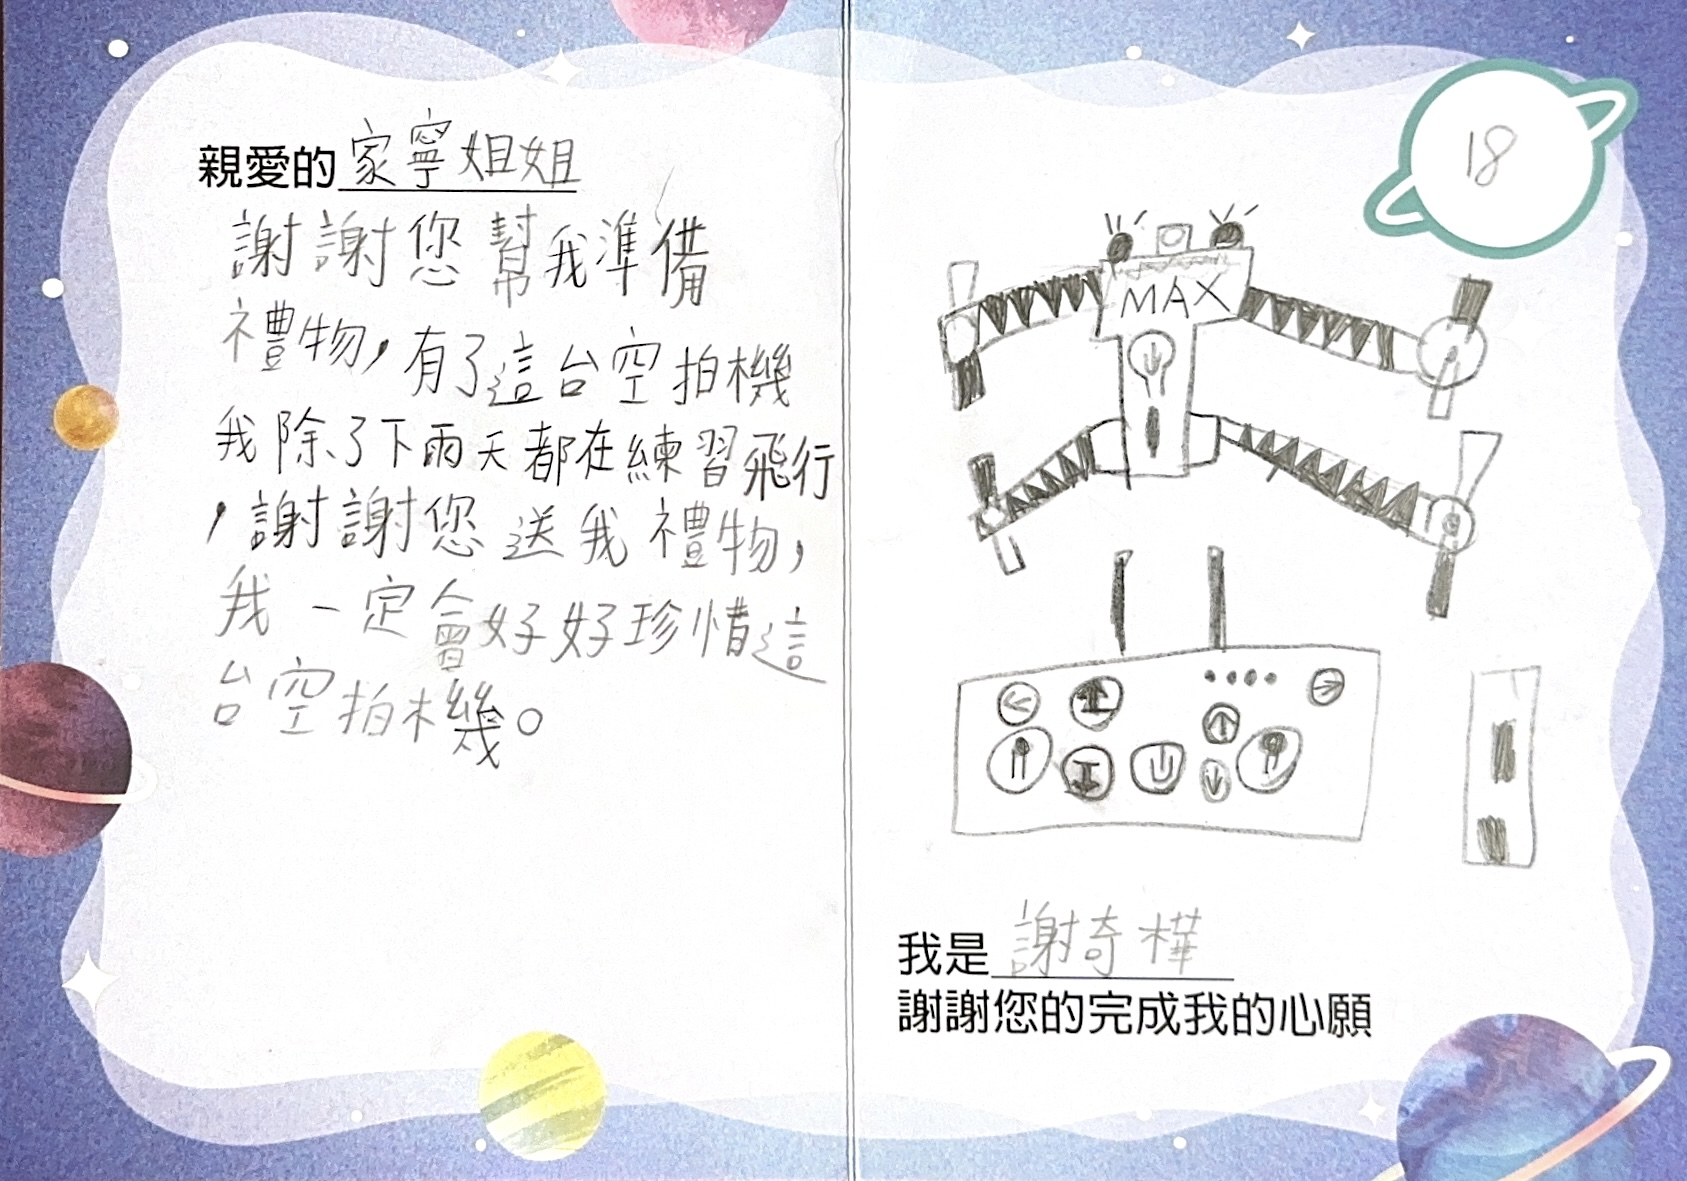 親愛的家寧姐姐
謝謝您幫我準備
禮物，有了這台空拍機
我除了下雨天都在練習飛行
，謝謝您送我禮物，
我一定會好好珍惜這
台空拍機。
18
MAX
我是謝奇樺
謝謝您的完成我的心願